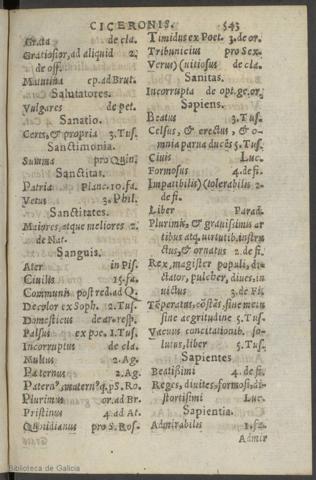 CICERONIS. 543
Grata de cla.
Gratiosior, ad aliquid 2.
de off.
Matutina ep. ad Brut.
Salutatores.
Vulgares de pet.
Sanatio.
Certa, & propria 3. Tus.
Sanctimonia.
Summa pro Quin.
Sanctitat.
Patria Planc. 10. fa.
Vetus 3. Phil.
Sanctitates.
Maiores, atque meliores 2.
de Nat.
Sanguis.
Ater in Pis.
Ciuilis 15. fa.
Communis post red. ad Q.
Decolor ex Soph. 2. Tus.
Domesticus de ar. resp.
Falsus ex poe. 1. Tus.
Incorruptus de cla.
Multus 2. Ag.
Paternus 2. Ag.
Patern9, matern9 q. pS. Ro.
Plurimus or. ad Br.
Pristinus 4. ad At.
Quotidianus pro S. Ros.
Timidus ex Poet. 3. de or.
Tribunicius pro Sex.
Verus) (uitiosus de cla.
Sanitas.
Incorrupta de opt. ge. or.
Sapiens.
Beatus 3. Tus.
Celsus, & erectus, & o-
mnia parua ducës 5. Tus.
Ciuis Luc.
Formosus 4. de fi.
Impatibilis) (tolerabilis 2.
de fi.
Liber Parad.
Plurimis, & grauisimis ar
tibus atq. uirtutib. instru
ctus, & ornatus 2. de fi.
Rex, magister populi, di-
ctator, pulcher, diues, in
uictus 3. de Fi.
Tẽperatus, cõstãs, sine metu
sine aegritudine 5. Tus.
Vacuus concitationib. so-
lutus, liber 5. Tus.
Sapientes
Beatißimi 4. de fi.
Reges, diuites, formosi, di-
stortisimi Luc.
Sapientia.
Admirabilis 1. fa.
Admir
Biblioteca de Galicia